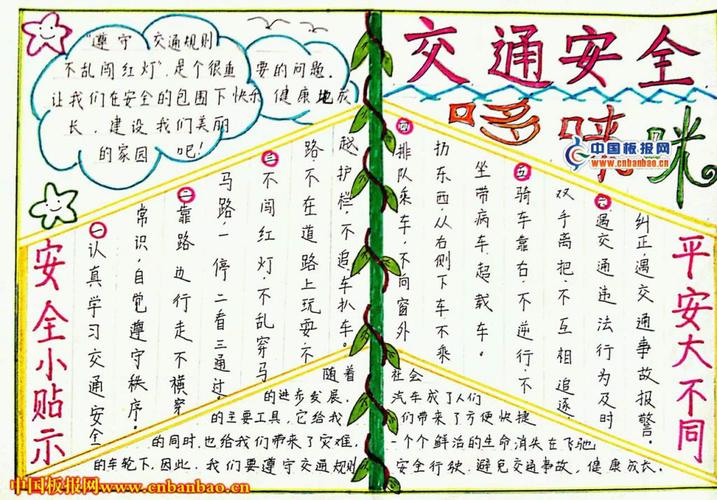 交通安全
哆唻咪
中国板报网
www.cnbanbao.cn
“遵守 交通规则
不乱闯红灯”,是个很重要的问题.
让我们在安全的包围下快乐健康地成
长,建设我们美丽
的家园 吧!
安全小贴示
一认真学习交通安全
常识,自觉遵守秩序。
二靠路边行走不横穿
马路,一停二看三通过。
三不闯红灯,不乱穿马
路不在道路上玩耍,不
越护栏,不追车扒车。
四排队乘车,不向窗外
扔东西从右侧下车不乘
坐带病车,超载车。
五骑车靠右,不逆行,不
双手离把,不互相追逐,
六遇交通违法行为及时
纠正,遇交通事故报警。
平安大不同
随着 社会
的进步发展. 汽车成了人们
的主要工具,它给我 们带来了方便快捷
的同时,也给我们带来了灾难, 一个个鲜活的生命消失在飞驰
的车轮下,因此,我们要遵守交通规则 安全行驶,避免交通事故,健康成长。
中国板报网www.cnbanbao.cn